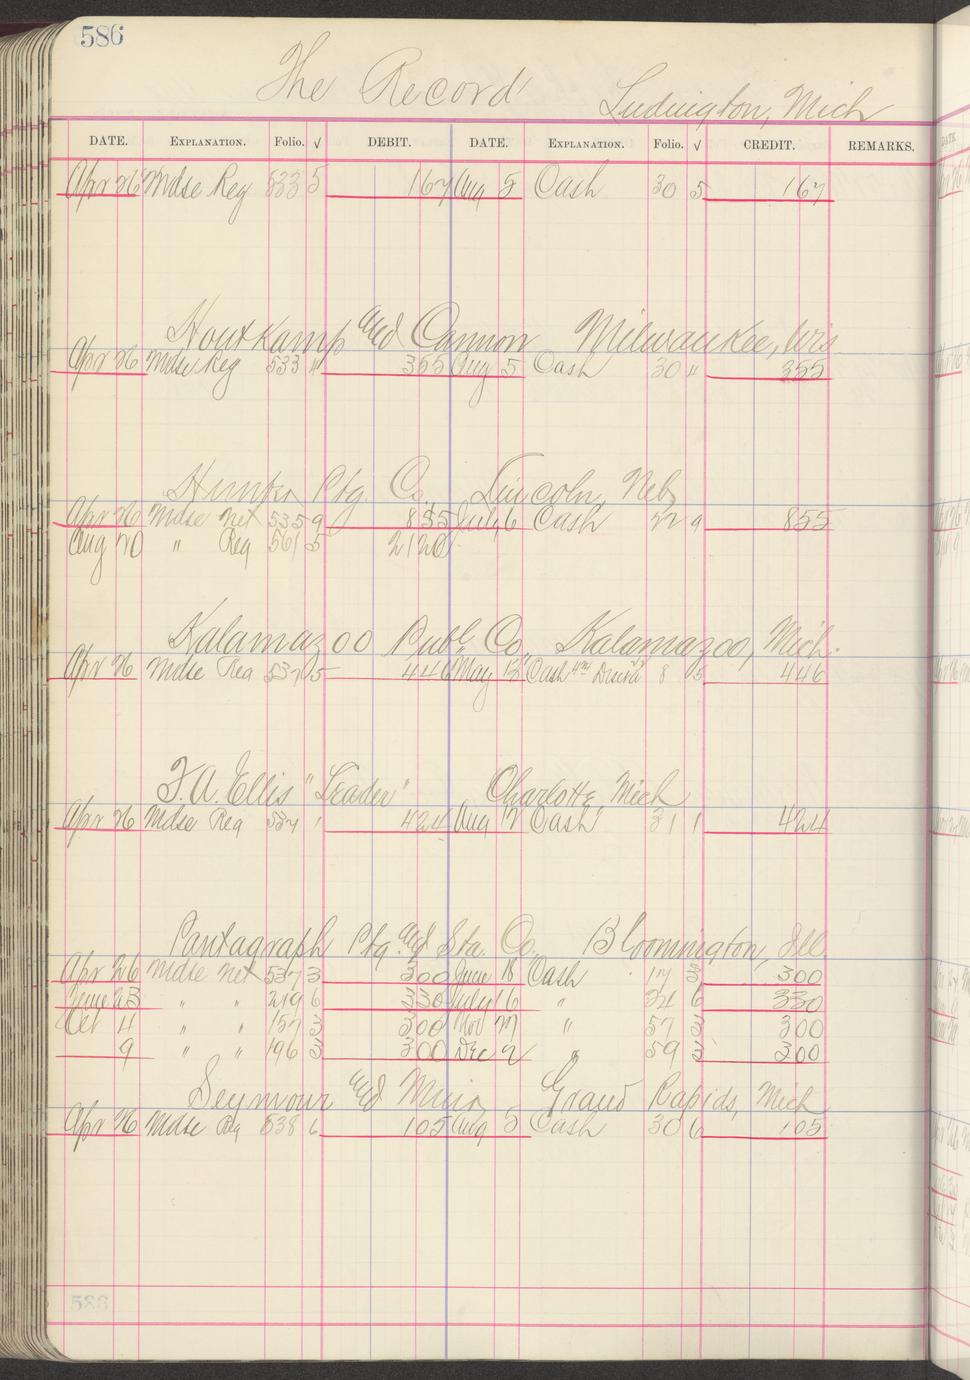 586
The Record Ludington, Mich
DATE. EXPLANATION. Folio. √ DEBIT. DATE. EXPLANATION. Folio. √ CREDIT. REMARKS.
Apr 26 Mdse Reg 533 5 167 Aug 5 Cash 30 5 167
Houtkamp and Cannon Milwaukee, Wis
Apr 26 Mdse Reg 533 4 355 Aug 5 Cash 30 4 355
Ptg. Co. Lincoln, Neb
Apr 26 Mdse Net 535 9 855 July 6 Cash 22 9 855
Aug 20 " Reg 561 5 2120
Kalamazoo Publ. Co., Kalamazoo, Mich.
Apr 26 Mdse Reg 537 5 446 May Cash 8 5 446
F. A. Ellis "Leader" Charlotte, Mich
Apr 26 Mdse Reg 537 1 424 Aug 12 Cash 31 1 424
Pantagraph Ptg. and Sta. Co. Bloomington, Ill.
Apr 26 Mdse Net 537 3 300 June 18 Cash 17 3 300
June 23 " " 219 6 330 July 16 " 24 6 330
Oct 4 " " 157 3 300 Nov 27 " 57 3 300
9 " " 196 3 300 Dec 2 " 59 3 300
Seymour and Muir Grand Rapids, Mich
Apr 26 Mdse Rg 538 6 105 Aug 5 Cash 30 6 105
586